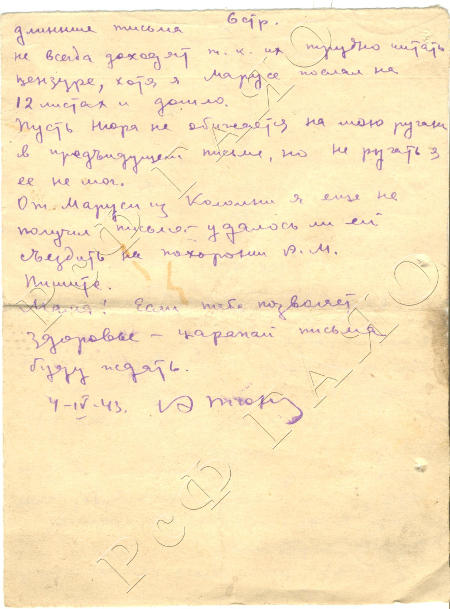 6 стр.
длинные письма
не всегда доходят т.к. их трудно читать
цензуре, хотя я Марусе послал на
12 листах и дошло.
Пусть Нюра не обижается на мою ругань
в предъидущем письме, но не ругать я
ее не мог.
От Маруси из Коломны я еще не
получил письма удалось ли ей
съездить на похороны А.М.
Пишите.
Мама! Если тебе позволяет
здоровье – царапай письма
буду ждать.
4-IV-43.
РсФ ГАЯО
РсФ ГАЯО